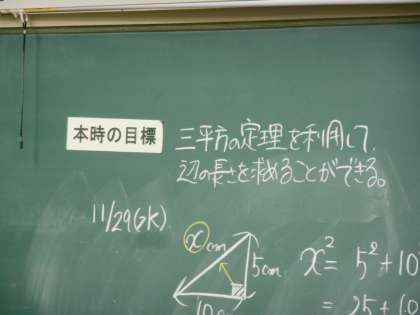 本時の目標
三平方の定理を利用して、
辺の長さを求めることができる。
11/29(火)
x cm
5cm
x² = 5² + 10
= 25 + 10